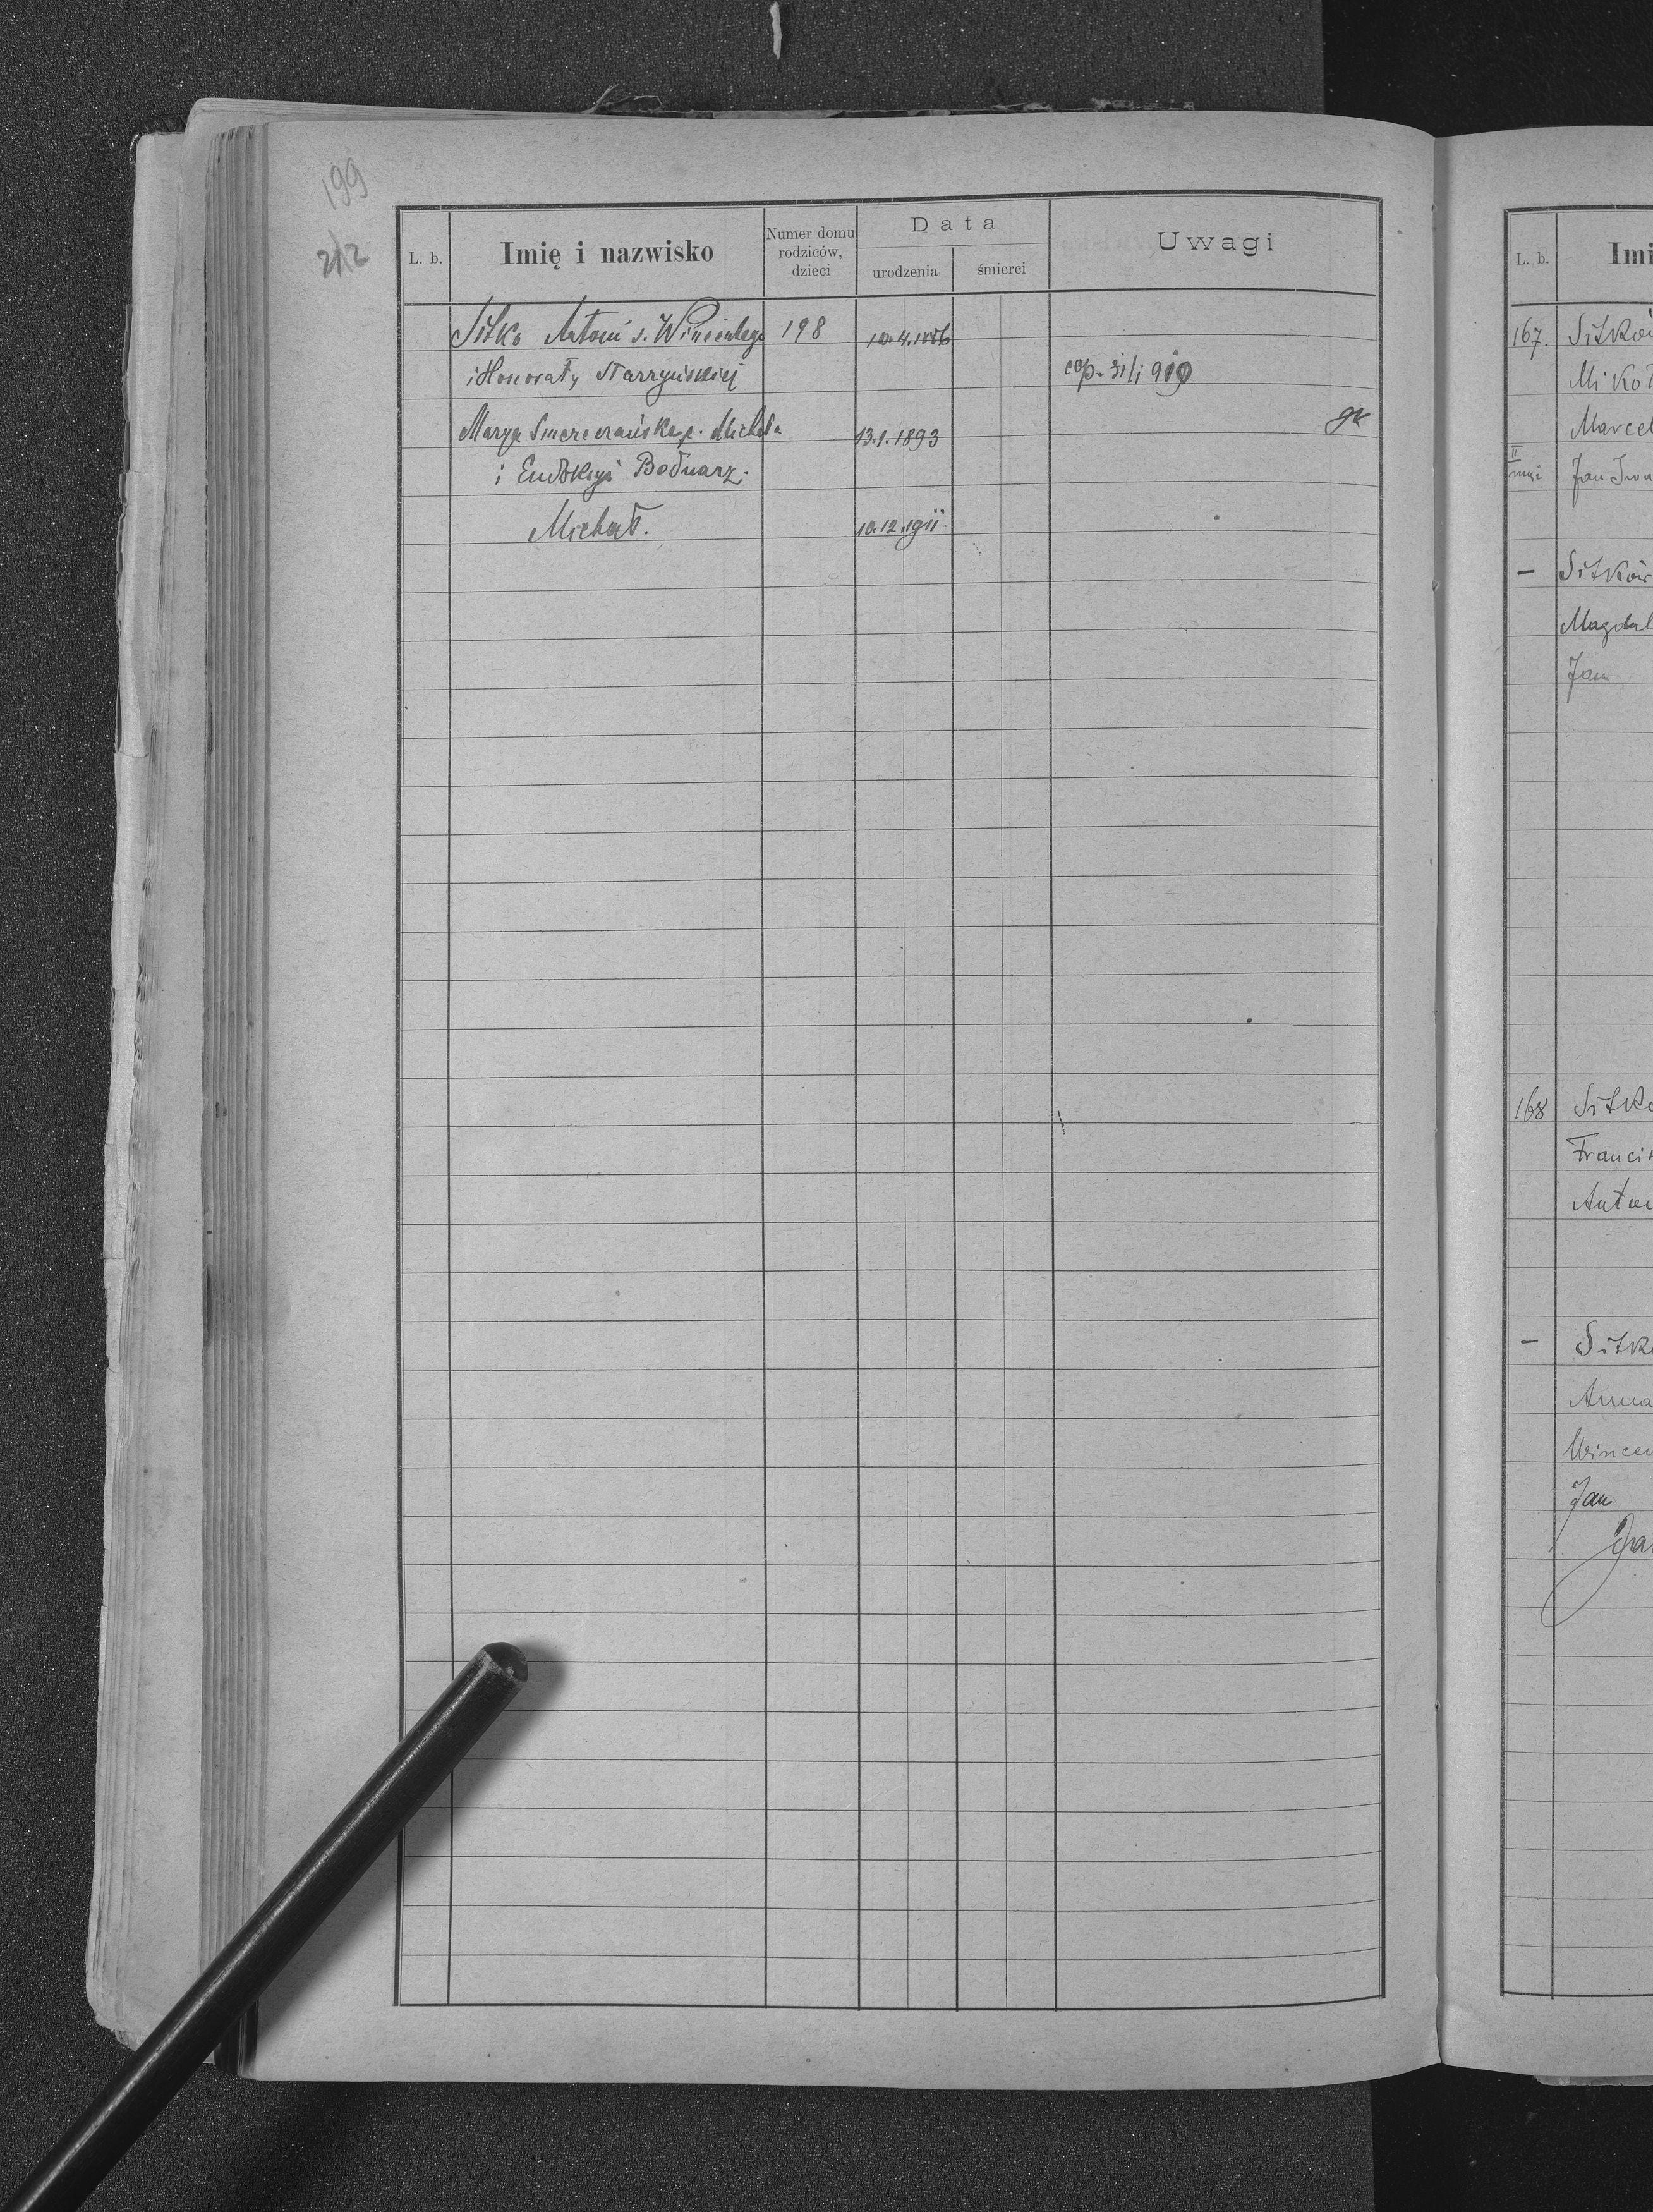 199
212
L. b.
Imię i nazwisko
Numer domu
rodziców,
dzieci
Data
urodzenia
śmierci
Uwagi
Sitko Antoni s. Wincentego 198 10.4.1886
i Honoraty Starzyńskiej cop. 31/1 910
Marya p. Michała 13.1.1893 gk
i Eudokyi Bednarz.
Michał. 10.12.1911
L. b.
Imi
167. Sitków
Mikoł
Marcel
II
mąż Jan Iwa
– Sitków
Magdal
Jan
168 Sitko
Francis
Anton
– Sitk
Anna
Wincen
Jan